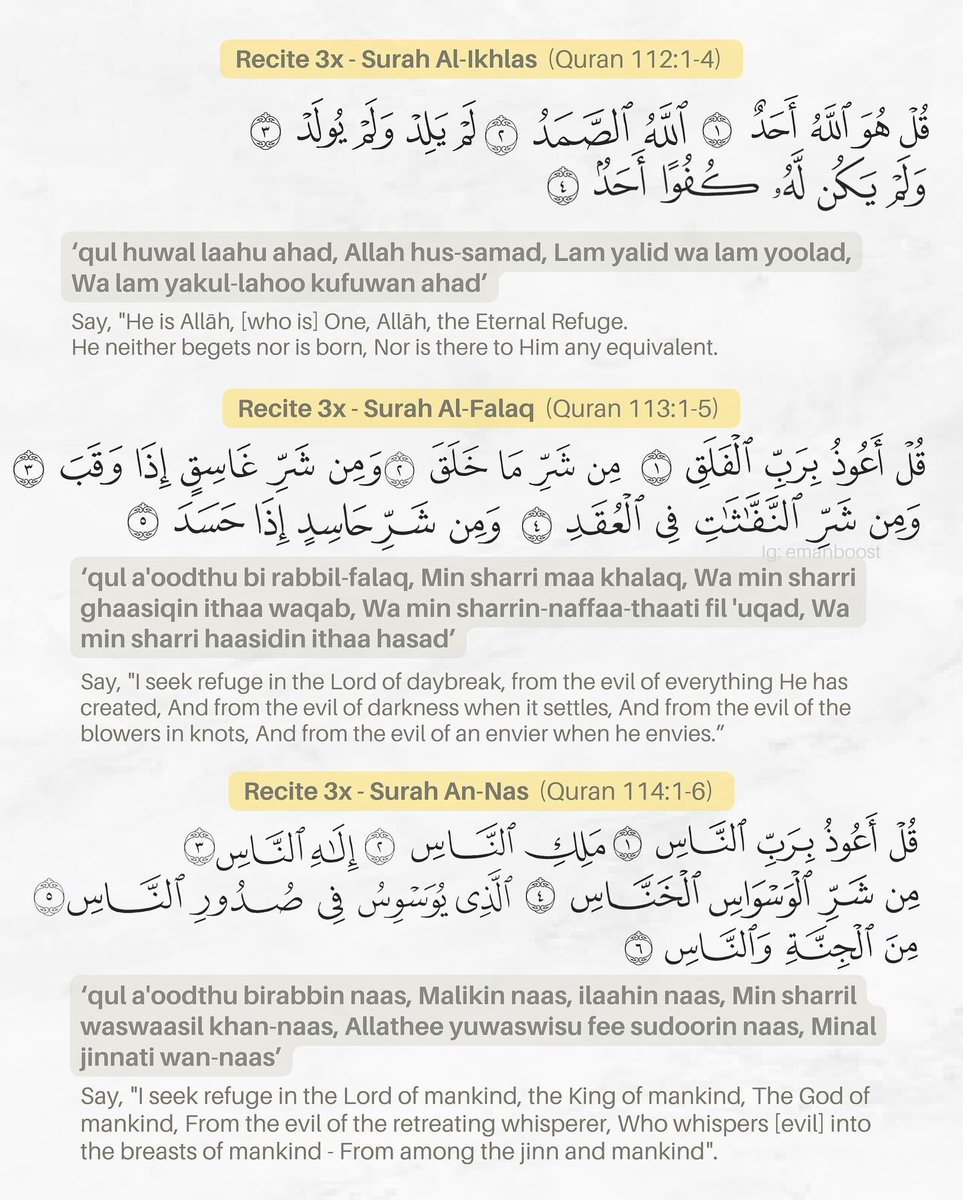 Recite 3x - Surah Al-Ikhlas (Quran 112:1-4)
قُلۡ هُوَ ٱللَّهُ أَحَدٌ ١ ٱللَّهُ ٱلصَّمَدُ ٢ لَمۡ يَلِدۡ وَلَمۡ يُولَدۡ ٣
وَلَمۡ يَكُن لَّهُۥ كُفُوًا أَحَدُۢ ٤
‘qul huwal laahu ahad, Allah hus-samad, Lam yalid wa lam yoolad,
Wa lam yakul-lahoo kufuwan ahad’
Say, "He is Allāh, [who is] One, Allāh, the Eternal Refuge.
He neither begets nor is born, Nor is there to Him any equivalent.
Recite 3x - Surah Al-Falaq (Quran 113:1-5)
قُلۡ أَعُوذُ بِرَبِّ ٱلۡفَلَقِ ١ مِن شَرِّ مَا خَلَقَ ٢ وَمِن شَرِّ غَاسِقٍ إِذَا وَقَبَ ٣
وَمِن شَرِّ ٱلنَّفَّٰثَٰتِ فِى ٱلۡعُقَدِ ٤ وَمِن شَرِّ حَاسِدٍ إِذَا حَسَدَ ٥
Ig: emanboost
‘qul a'oodthu bi rabbil-falaq, Min sharri maa khalaq, Wa min sharri
ghaasiqin ithaa waqab, Wa min sharrin-naffaa-thaati fil 'uqad, Wa
min sharri haasidin ithaa hasad’
Say, "I seek refuge in the Lord of daybreak, from the evil of everything He has
created, And from the evil of darkness when it settles, And from the evil of the
blowers in knots, And from the evil of an envier when he envies.”
Recite 3x - Surah An-Nas (Quran 114:1-6)
قُلۡ أَعُوذُ بِرَبِّ ٱلنَّاسِ ١ مَلِكِ ٱلنَّاسِ ٢ إِلَٰهِ ٱلنَّاسِ ٣
مِن شَرِّ ٱلۡوَسۡوَاسِ ٱلۡخَنَّاسِ ٤ ٱلَّذِى يُوَسۡوِسُ فِى صُدُورِ ٱلنَّاسِ ٥
مِنَ ٱلۡجِنَّةِ وَٱلنَّاسِ ٦
‘qul a'oodthu birabbin naas, Malikin naas, ilaahin naas, Min sharril
waswaasil khan-naas, Allathee yuwaswisu fee sudoorin naas, Minal
jinnati wan-naas’
Say, "I seek refuge in the Lord of mankind, the King of mankind, The God of
mankind, From the evil of the retreating whisperer, Who whispers [evil] into
the breasts of mankind - From among the jinn and mankind".